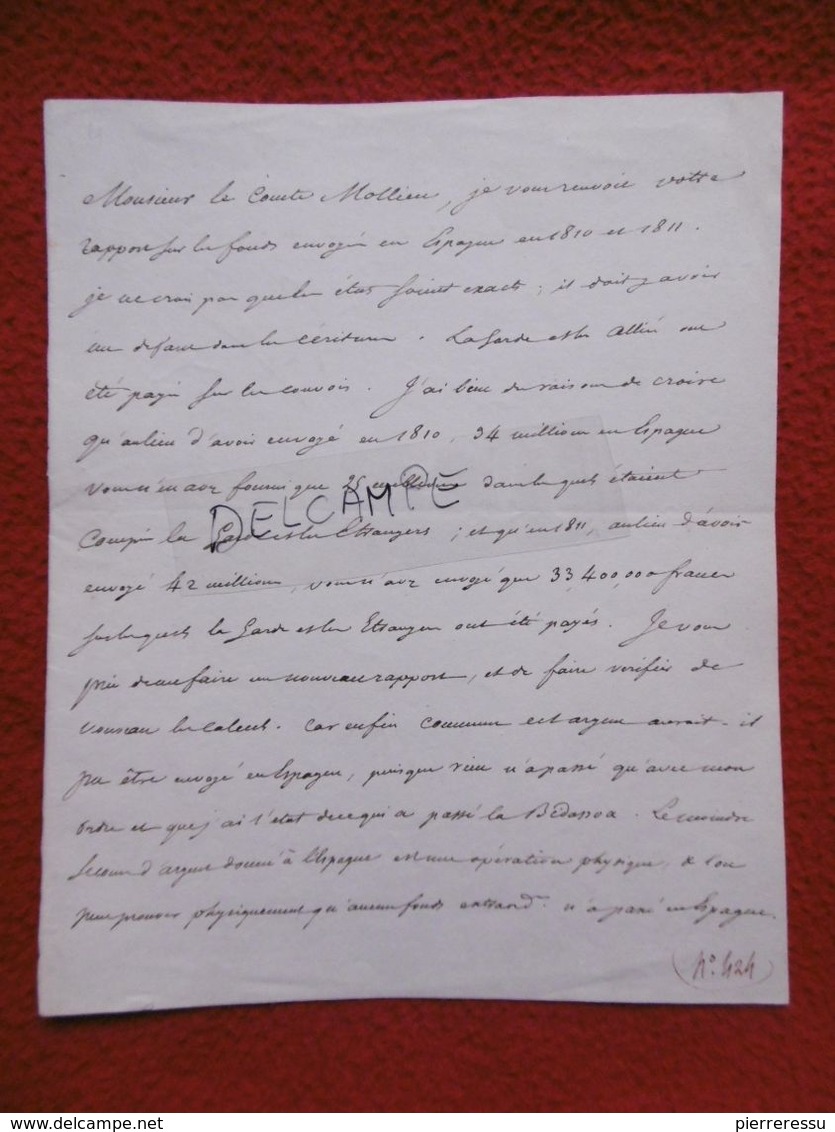 Monsieur le Comte Mollien, je vous renvoie votre
rapport sur les fonds envoyés en Espagne en 1810 et 1811.
je ne crois pas que les états soient exacts ; il doit y avoir
un défaut dans les écritures. La Garde et les Alliés ont
été payés sur les convois. J'ai bien des raisons de croire
qu'au lieu d'avoir envoyé en 1810, 34 millions en Espagne
vous n'en avez fourni que 25 millions dans lesquels étaient
DELCAMPE
compris la Garde et les Etrangers ; et qu'en 1811, au lieu d'avoir
envoyé 42 millions, vous n'avez envoyé que 33,400,000 francs
sur lesquels la Garde et les Etrangers ont été payés. Je vous
prie de me faire un nouveau rapport, et de faire vérifier de
nouveau les calculs. Car enfin comment cet argent aurait-il
pu être envoyé en Espagne, puisque rien n'a passé qu'avec mon
ordre et que j'ai l'état de ce qui a passé la Bidassoa. Le moindre
secours d'argent donné à l'Espagne est une opération physique, & l'on
peut prouver physiquement qu'aucun fonds n'a passé en Espagne.
(N°. 424)
DELCAMPE.NET
pierreressu